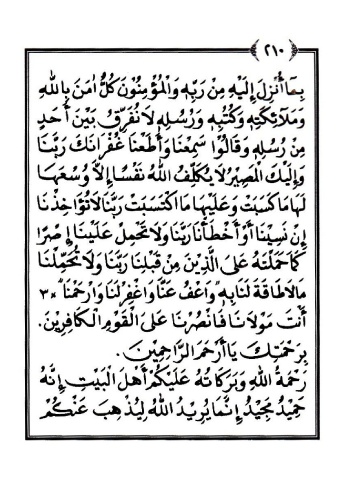 ٢١٠
بِمَا أُنْزِلَ إِلَيْهِ مِنْ رَبِّهِ وَالْمُؤْمِنُونَ كُلٌّ اٰمَنَ بِاللهِ
وَمَلَائِكَتِهِ وَكُتُبِهِ وَرُسُلِهِ لَا نُفَرِّقُ بَيْنَ أَحَدٍ
مِنْ رُسُلِهِ وَقَالُوا سَمِعْنَا وَأَطَعْنَا غُفْرَانَكَ رَبَّنَا
وَإِلَيْكَ الْمَصِيرُ لَا يُكَلِّفُ اللهُ نَفْسًا إِلَّا وُسْعَهَا
لَهَا مَا كَسَبَتْ وَعَلَيْهَا مَا اكْتَسَبَتْ رَبَّنَا لَا تُؤَاخِذْنَا
إِنْ نَسِينَا أَوْ أَخْطَأْنَا رَبَّنَا وَلَا تَحْمِلْ عَلَيْنَا إِصْرًا
كَمَا حَمَلْتَهُ عَلَى الَّذِينَ مِنْ قَبْلِنَا رَبَّنَا وَلَا تُحَمِّلْنَا
مَا لَا طَاقَةَ لَنَا بِهِ ۞ وَاعْفُ عَنَّا وَاغْفِرْ لَنَا وَارْحَمْنَا ×٣
أَنْتَ مَوْلَانَا فَانْصُرْنَا عَلَى الْقَوْمِ الْكَافِرِينَ.
بِرَحْمَتِكَ يَا أَرْحَمَ الرَّاحِمِينَ.
رَحْمَةُ اللهِ وَبَرَكَاتُهُ عَلَيْكُمْ أَهْلَ الْبَيْتِ إِنَّهُ
حَمِيدٌ مَجِيدٌ إِنَّمَا يُرِيدُ اللهُ لِيُذْهِبَ عَنْكُمْ